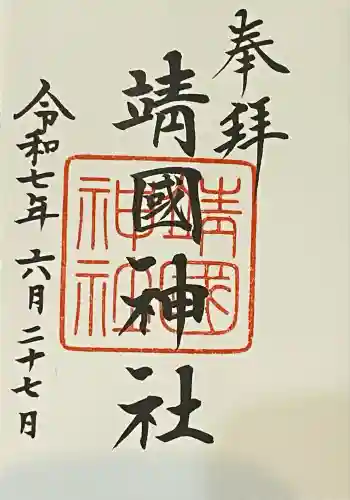 奉拝
靖國神社
靖國
神社
令和七年 六月二十七日